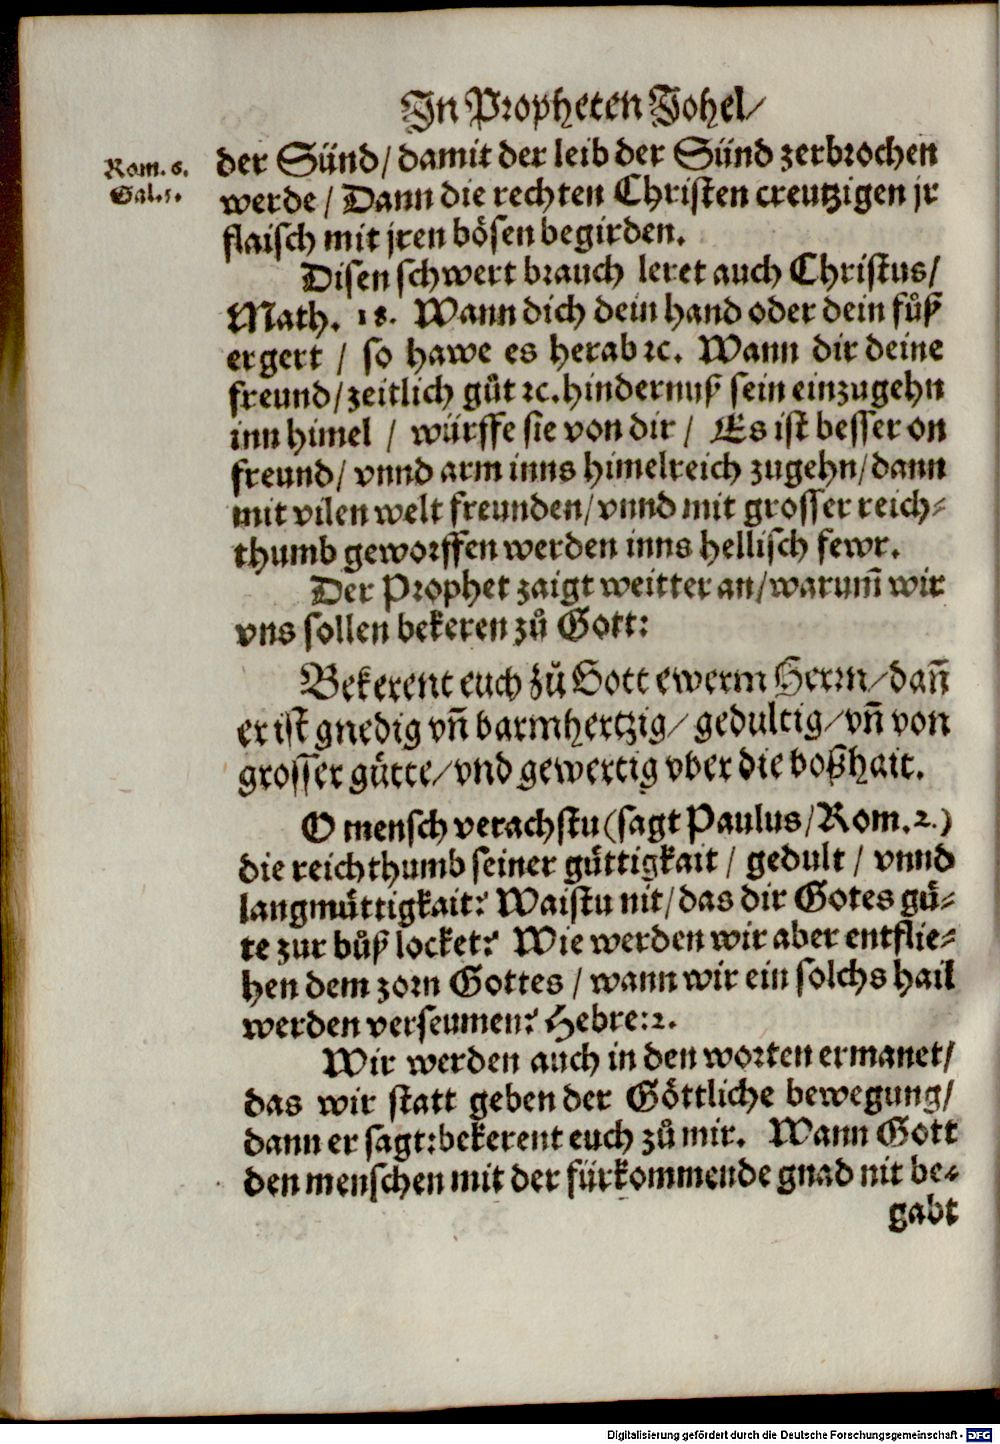 In Propheten Johel/
Rom. 6.
Gal. 5.
der Sünd/ damit der leib der Sünd zerbrochen
werde / Dann die rechten Christen creutzigen jr
flaisch mit jren bösen begirden.
Disen schwert brauch leret auch Christus/
Math. 18. Wann dich dein hand oder dein fůß
ergert / so hawe es herab ⁊c. Wann dir deine
freund/ zeitlich gůt ⁊c. hindernuß sein einzugehn
inn himel / würffe sie von dir / Es ist besser on
freund/ vnnd arm inns himelreich zugehn/ dann
mit vilen welt freunden/ vnnd mit grosser reich-
thumb geworffen werden inns hellisch fewr.
Der Prophet zaigt weitter an/ warum̃ wir
vns sollen bekeren zů Gott:
Bekerent euch zů Gott ewerm Herrn/ dañ
er ist gnedig vñ barmhertzig/ gedultig/ vñ von
grosser gütte/ vnd gewertig vber die boßhait.
O mensch verachstu (sagt Paulus/ Rom. 2.)
die reichthumb seiner güttigkait / gedult / vnnd
langmüttigkait? Waistu nit/ das dir Gotes gü-
te zur bůß locket? Wie werden wir aber entflie-
hen dem zorn Gottes / wann wir ein solchs hail
werden verseumen? Hebre: 2.
Wir werden auch in den worten ermanet/
das wir statt geben der Göttliche bewegung/
dann er sagt: bekerent euch zů mir. Wann Gott
den menschen mit der fürkommende gnad nit be-
gabt
Digitalisierung gefördert durch die Deutsche Forschungsgemeinschaft - DFG